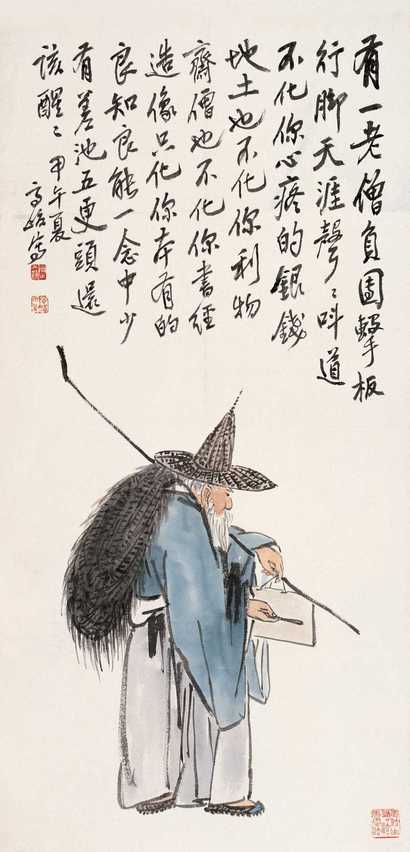 有一老僧負圖擊板
行脚天涯聲〻叫道
不化你心疼的銀錢
地土也不化你利物
齋僧也不化你書經
造像只化你本有的
良知良能一念中少
有差池五更頭還
該醒〻 甲午夏
寫